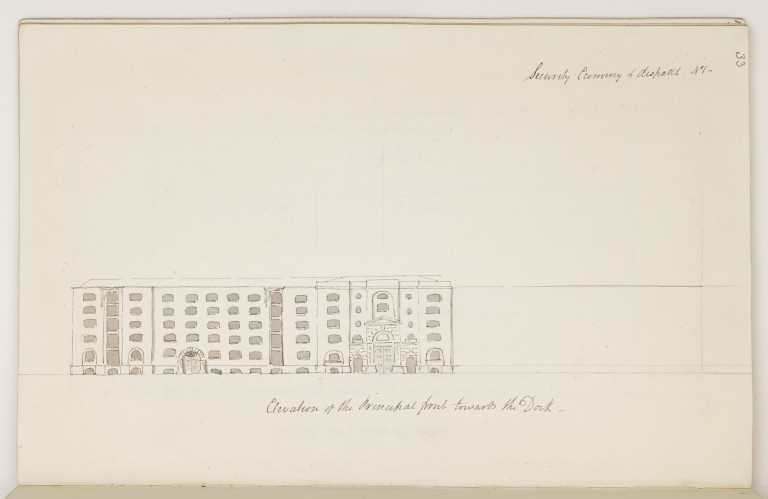 33
Security Economy & dispatch. No 1-
Elevation of the Principal front towards the Dock -